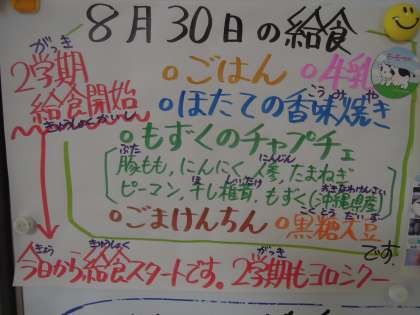 8月30日の給食
がっき
2学期
給食開始
きゅうしょくかいし
ごはん
牛乳
こうみや
ほたての香味焼き
もずくのチャプチェ
ぶた にんじん
豚もも,にんにく,人参,たまねぎ
ほ しいたけ おきなわけんさん
ピーマン,干し椎茸,もずく(沖縄県産)
こくとうだいず
ごまけんちん
黒糖大豆
です。
きょう きゅうしょく がっき
今日から給食スタートです。2学期もヨロシクー